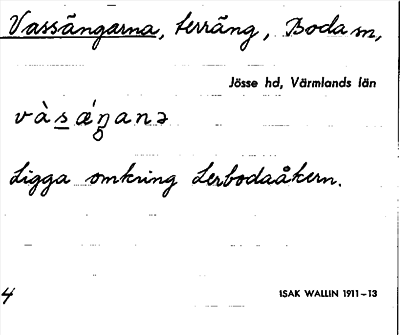 Vassängarna, terräng, Boda sn,
Jösse hd, Värmlands län
và s ǽŋanə
Ligga omkring Lerbodaåkern.
4
ISAK WALLIN 1911-13